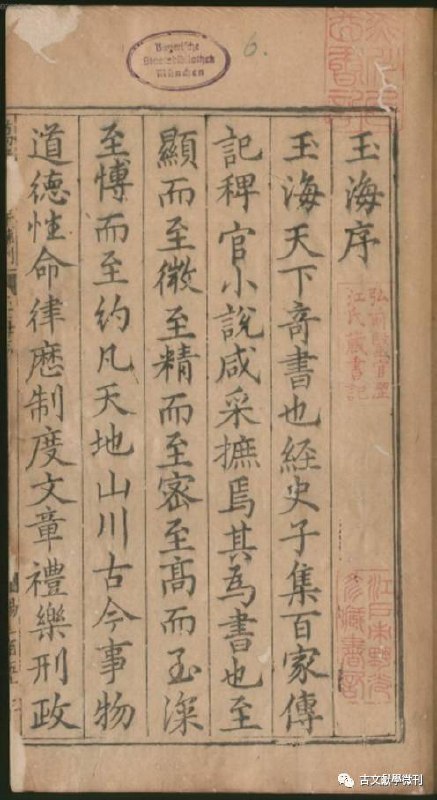 玉海序
玉海天下竒書也經史子集百家傳
記稗官小說咸采摭焉其為書也至
顯而至微至精而至宻至髙而至深
至博而至約凡天地山川古今事物
道德性命律曆制度文章禮樂刑政
Bayerische
Staatsbibliothek
München
6.
弘前醫官澀
江氏藏書記
古文獻學微刊